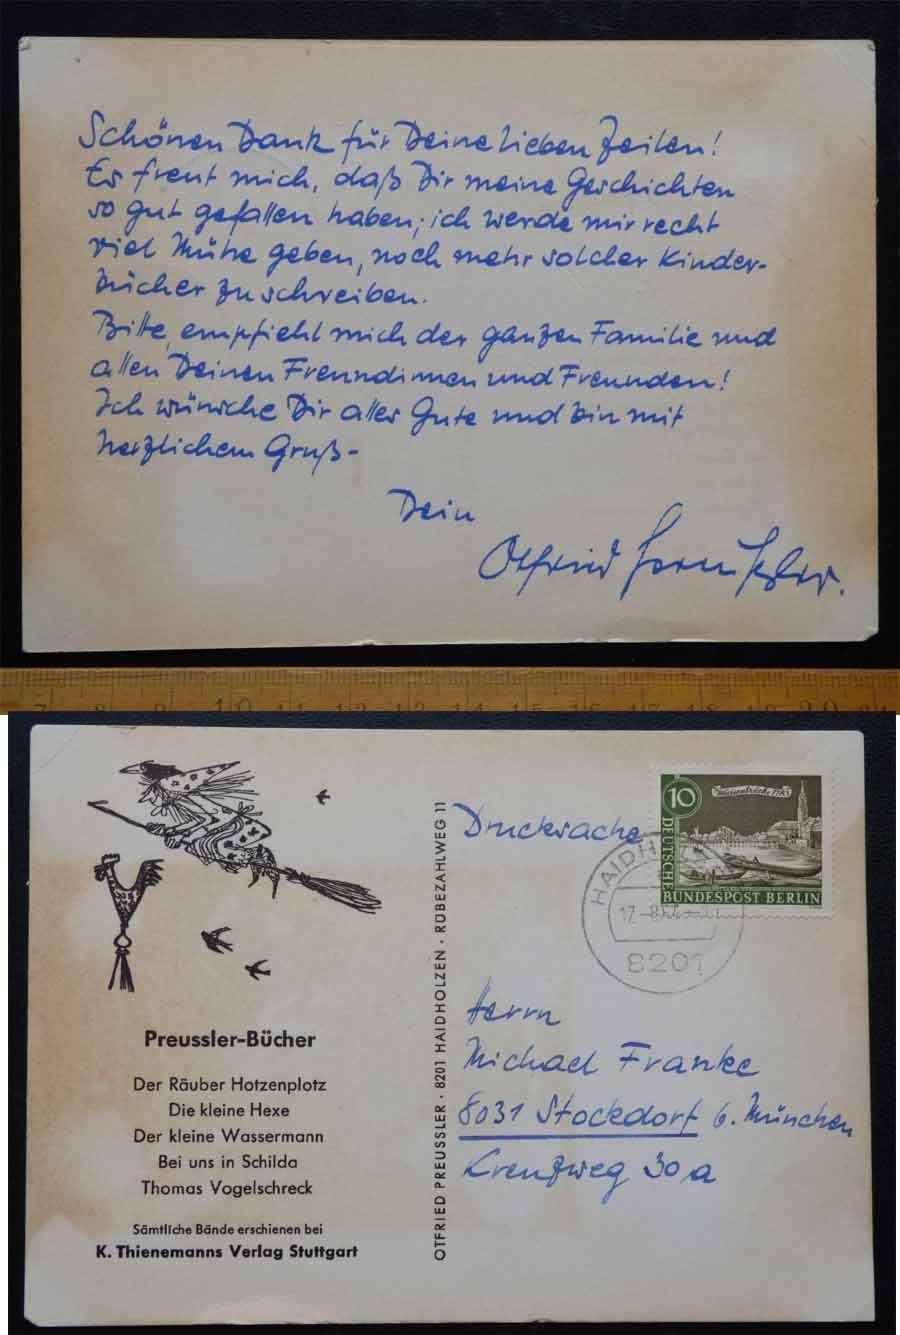 Schönen Dank für Deine lieben Zeilen!
Es freut mich, daß Dir meine Geschichten
so gut gefallen haben; ich werde mir recht
viel Mühe geben, noch mehr solcher Kinder-
bücher zu schreiben.
Bitte, empfiehl mich der ganzen Familie und
allen Deinen Freundinnen und Freunden!
Ich wünsche Dir alles Gute und bin mit
herzlichem Gruß-
Dein
Otfried Preußler.
7 8 9 10 11 12 13 14 15 16 17 18 19 20 21
Drucksache
10
DEUTSCHE
BUNDESPOST BERLIN
8201
Preussler-Bücher
Der Räuber Hotzenplotz
Die kleine Hexe
Der kleine Wassermann
Bei uns in Schilda
Thomas Vogelschreck
Sämtliche Bände erschienen bei
K. Thienemanns Verlag Stuttgart
OTFRIED PREUSSLER · 8201 HAIDHOLZEN · RÜBEZAHLWEG 11
Herrn
Michael Franke
8031 Stockdorf b. München
Kreuzweg 30a